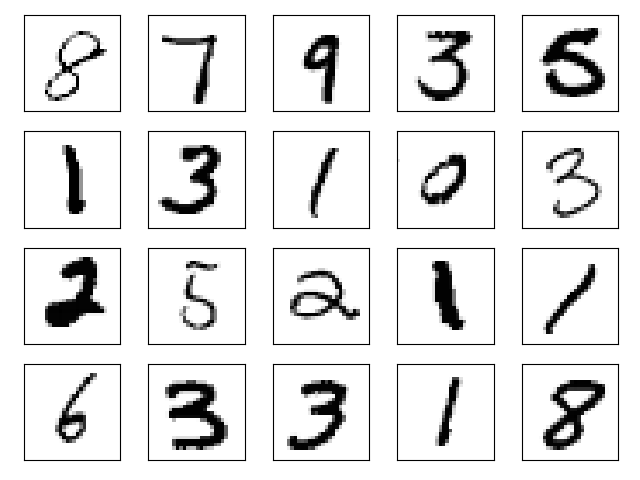 8 7 9 3 5
1 3 1 0 3
2 5 2 1 1
6 3 3 1 8